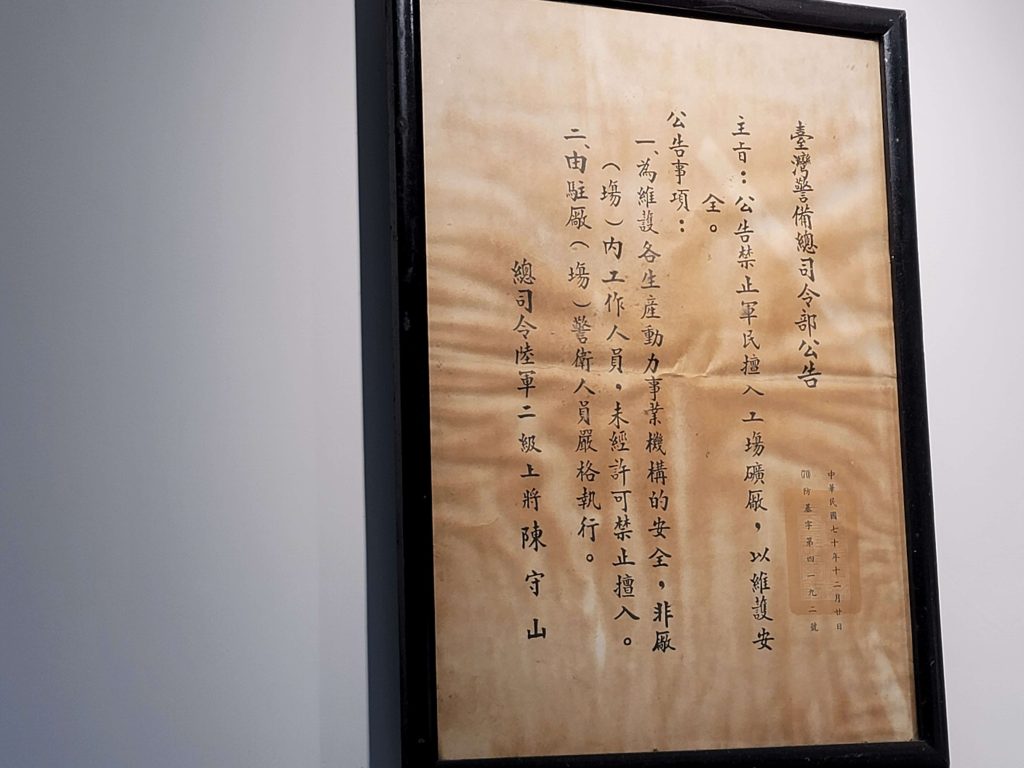 臺灣警備總司令部公告
中華民國七十年十二月廿日
(70)防基字第四一九二號
主旨：公告禁止軍民擅入工場礦廠，以維護安
全。
公告事項：
一、為維護各生產動力事業機構的安全，非廠
（場）內工作人員，未經許可禁止擅入。
二、由駐廠（場）警衛人員嚴格執行。
總司令陸軍二級上將陳守山